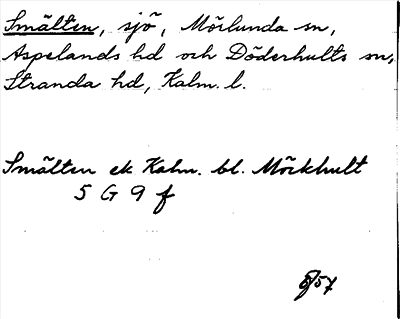 Smälten, sjö, Mörlunda sn,
Aspelands hd och Döderhults sn,
Stranda hd, Kalm. l.
Smälten ek Kalm. bl. Möckhult
5 G 9 f